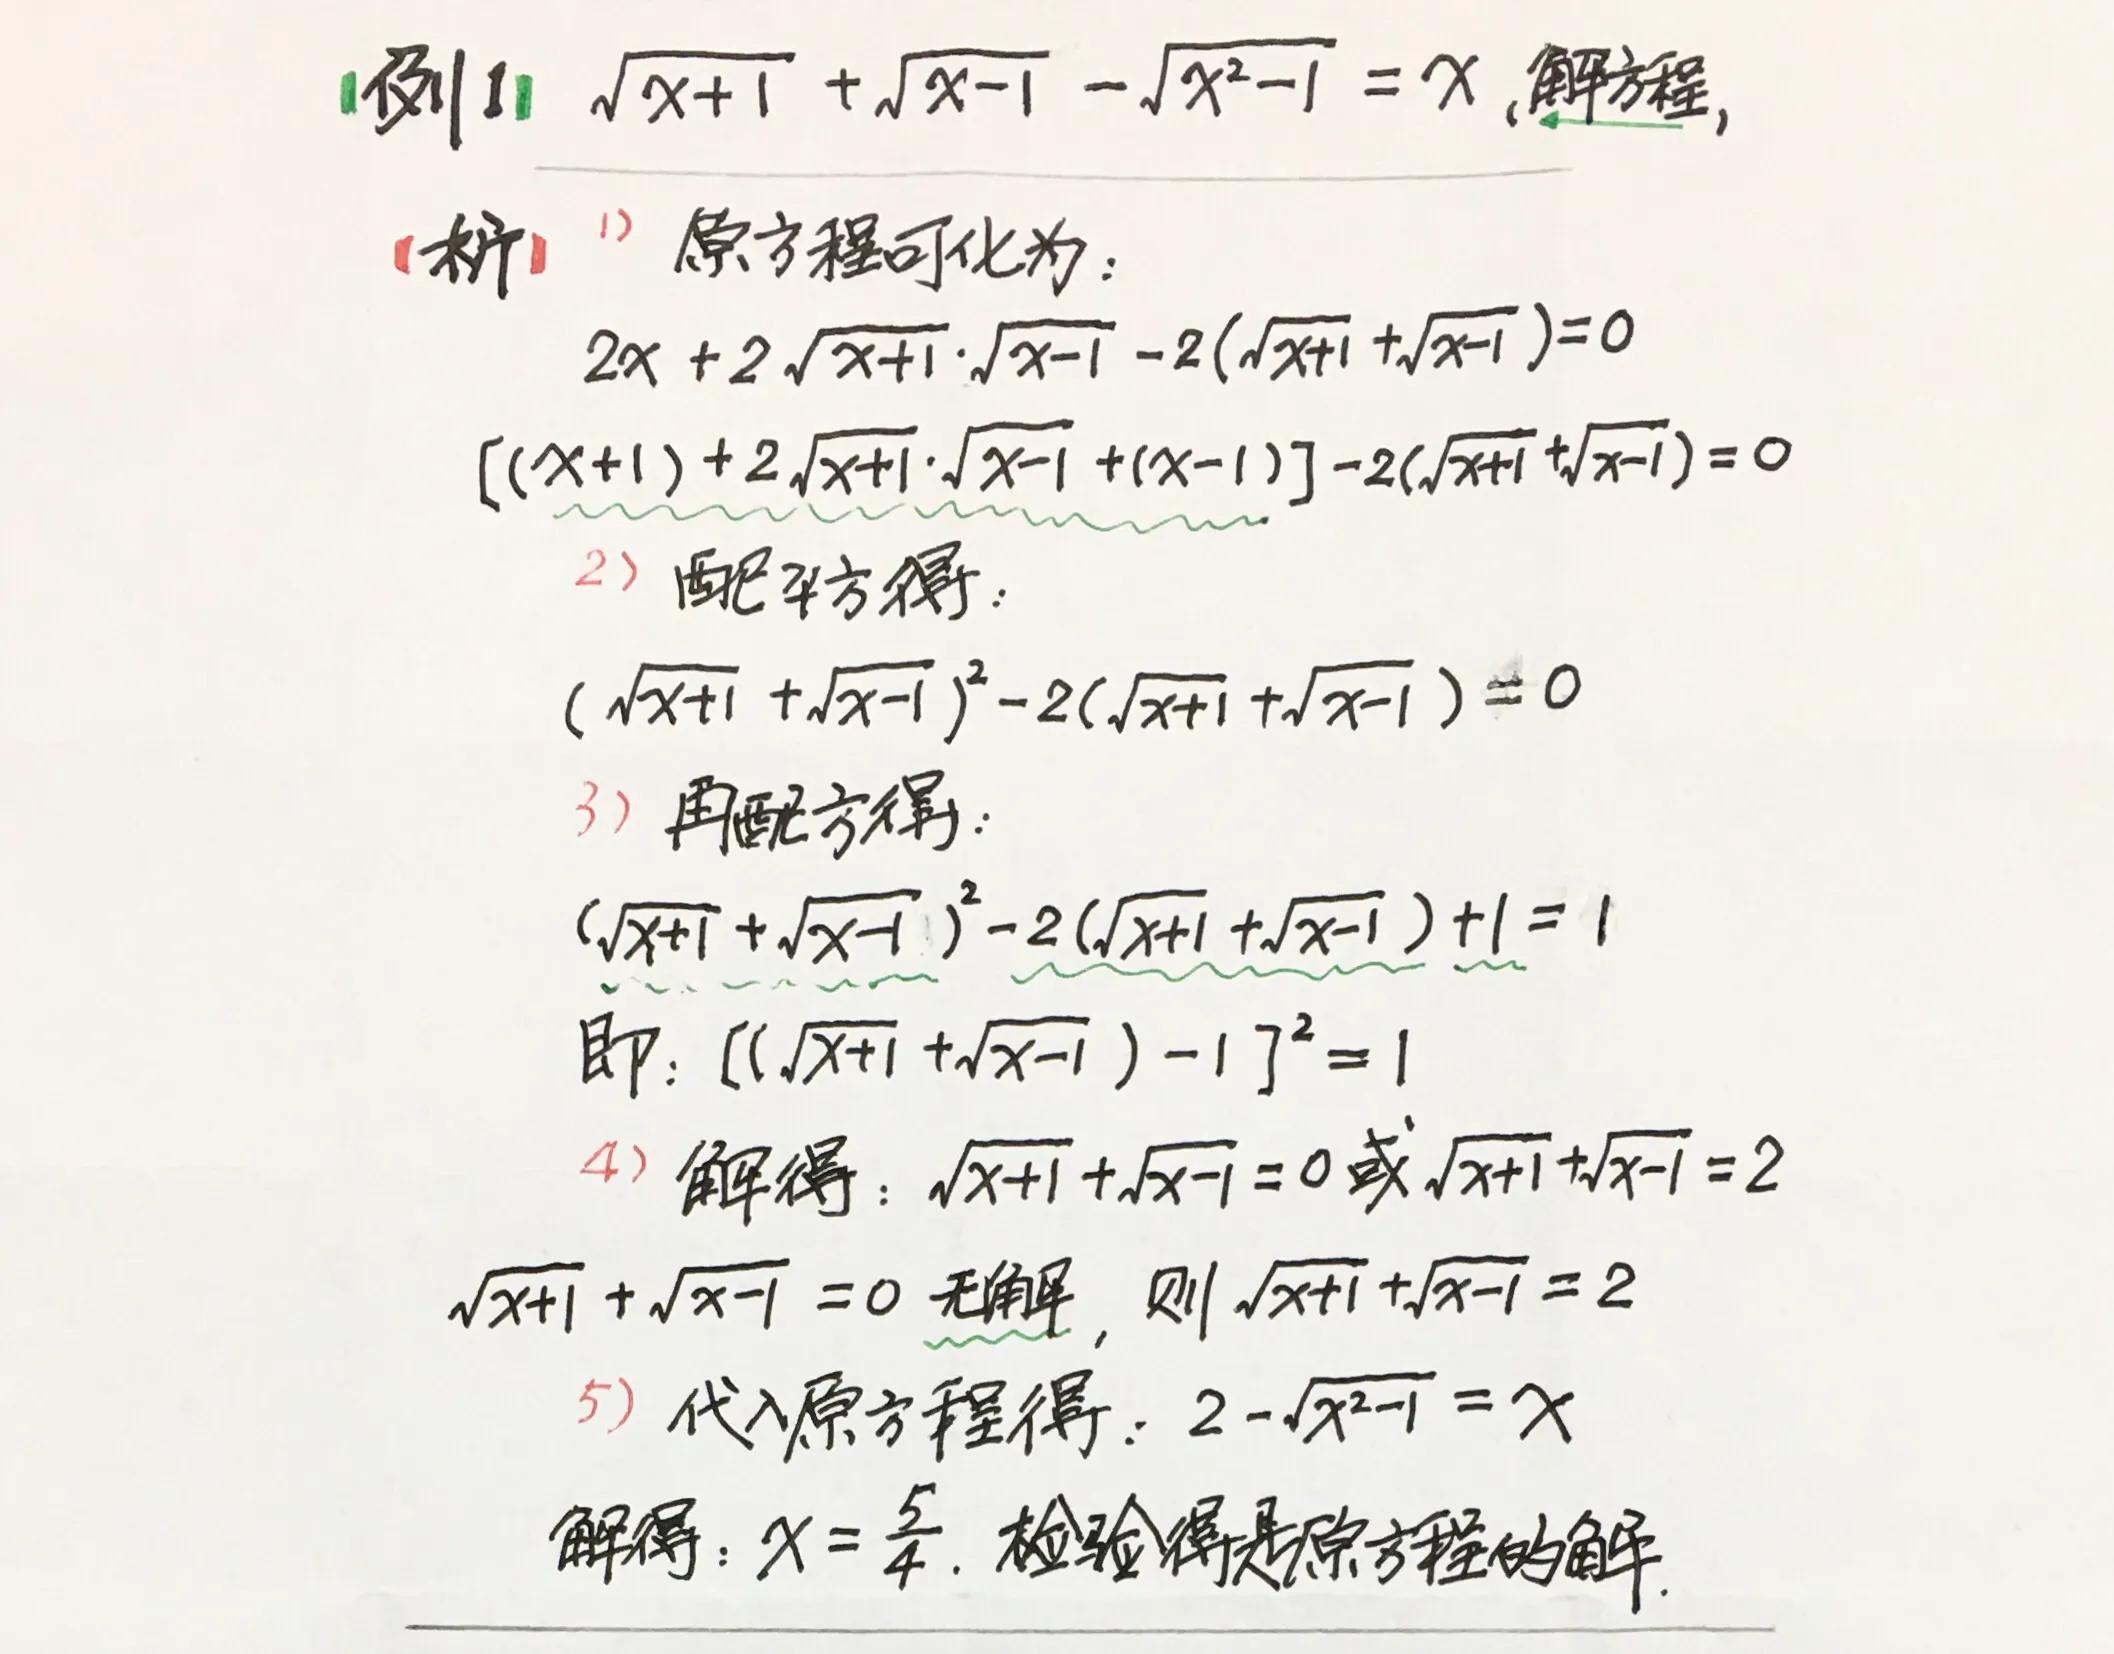 【例1】 √(x+1) + √(x-1) - √(x²-1) = x, 解方程,
【析】 1) 原方程可化为:
2x + 2√(x+1)·√(x-1) - 2(√(x+1) + √(x-1)) = 0
[(x+1) + 2√(x+1)·√(x-1) + (x-1)] - 2(√(x+1) + √(x-1)) = 0
2) 配平方得:
(√(x+1) + √(x-1))² - 2(√(x+1) + √(x-1)) = 0
3) 再配方得:
(√(x+1) + √(x-1))² - 2(√(x+1) + √(x-1)) + 1 = 1
即: [(√(x+1) + √(x-1)) - 1]² = 1
4) 解得: √(x+1) + √(x-1) = 0 或 √(x+1) + √(x-1) = 2
√(x+1) + √(x-1) = 0 无解, 则 √(x+1) + √(x-1) = 2
5) 代入原方程得: 2 - √(x²-1) = x
解得: x = 5/4. 检验得是原方程的解.